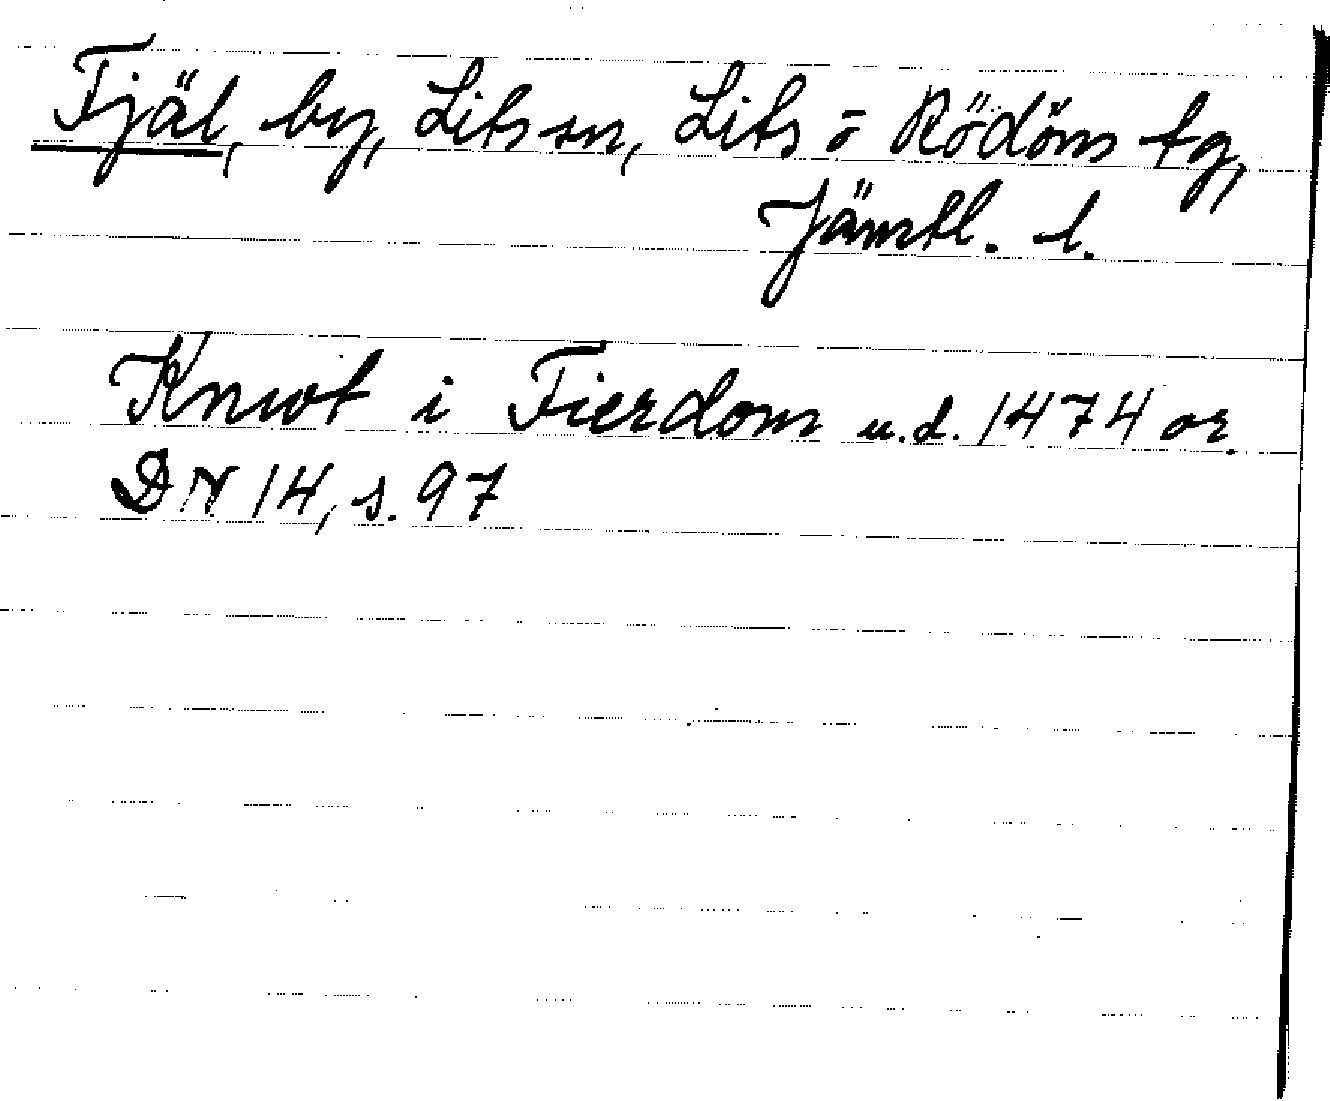 Fjäl, by, Lits sn, Lits o Rödöns tg,
Jämtl. l.
Knwt i Fierdom u.d. 1474 or.
DN 14, s. 97